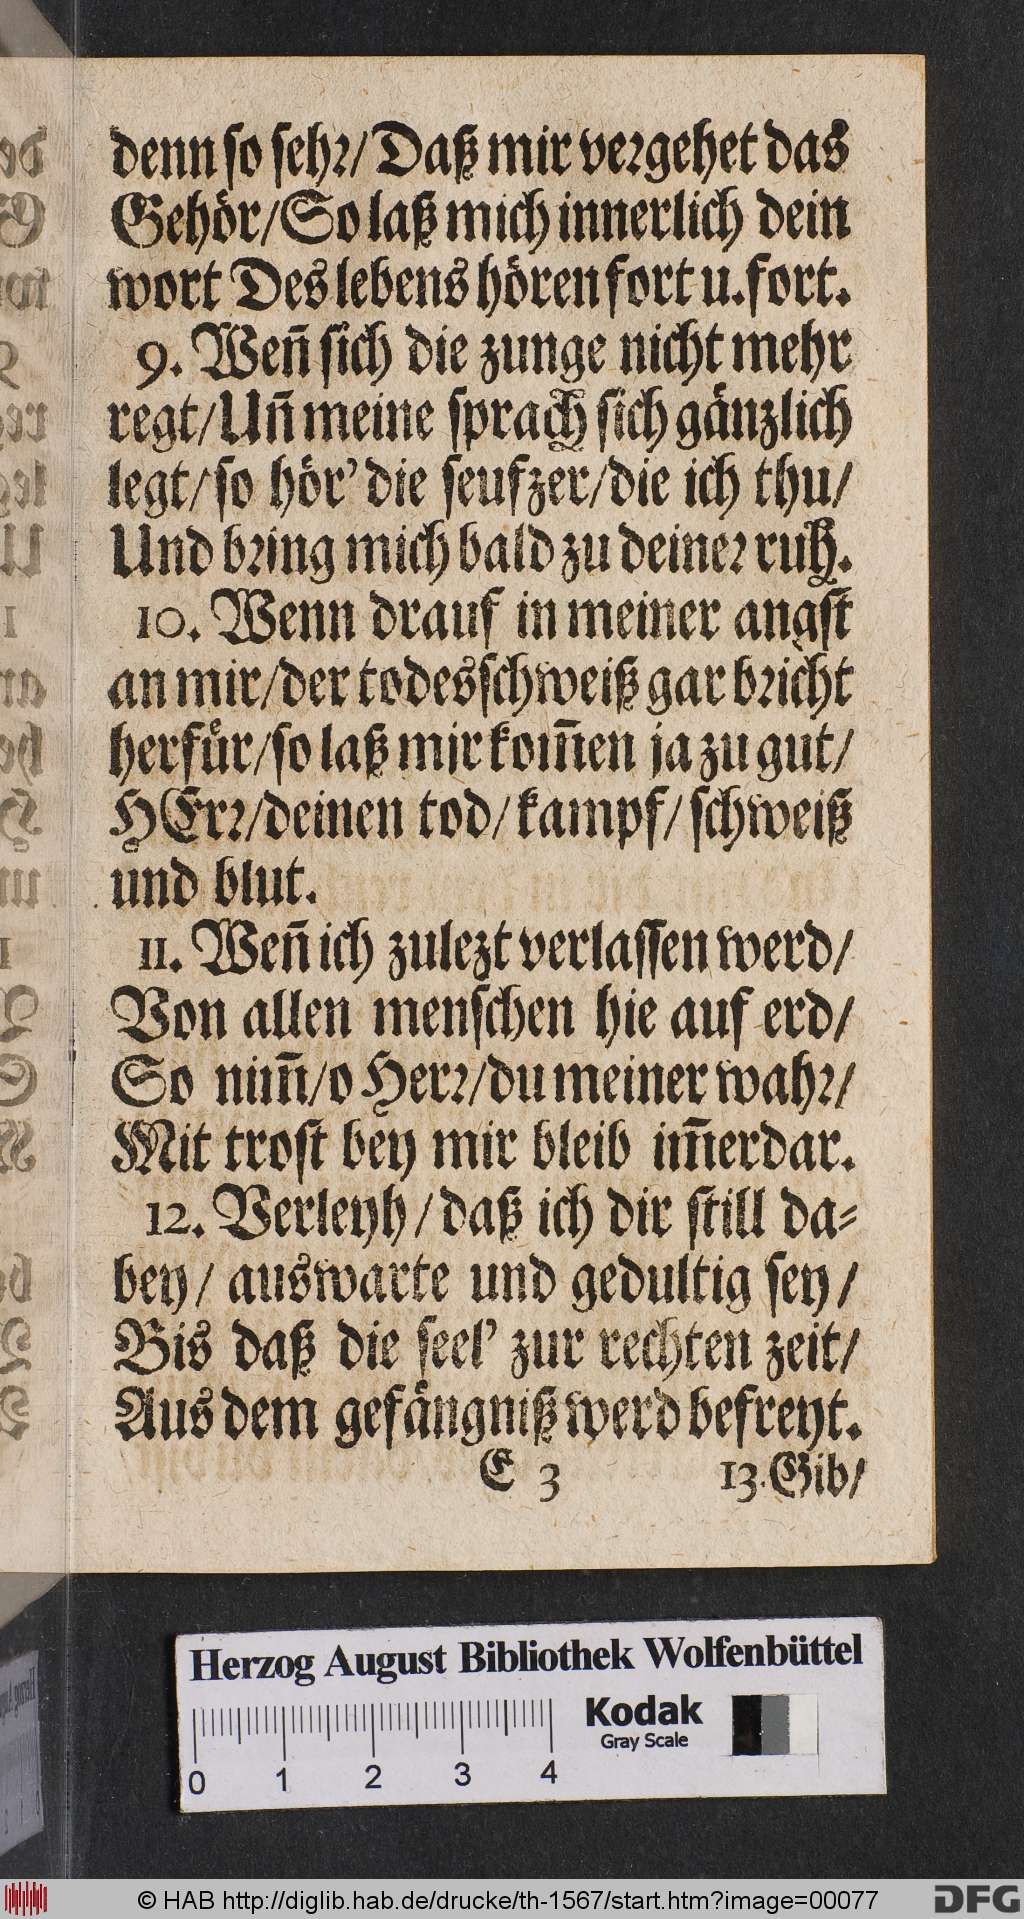 denn so sehr/ Daß mir vergehet das
Gehör/ So laß mich innerlich dein
wort Des lebens hören fort u. fort.
9. Weñ sich die zunge nicht mehr
regt/ Uñ meine sprach sich gänzlich
legt/ so hör’ die seufzer/ die ich thu/
Und bring mich bald zu deiner ruh.
10. Wenn drauf in meiner angst
an mir/ der todesschweiß gar bricht
herfür/ so laß mir kom̃en ja zu gut/
HErr/ deinen tod/ kampf/ schweiß
und blut.
11. Weñ ich zulezt verlassen werd/
Von allen menschen hie auf erd/
So nim̃/ o Herr/ du meiner wahr/
Mit trost bey mir bleib im̃erdar.
12. Verleyh/ daß ich dir still da-
bey/ auswarte und gedultig sey/
Bis daß die seel’ zur rechten zeit/
Aus dem gefängniß werd befreyt.
E 3 13. Gib/
Herzog August Bibliothek Wolfenbüttel
Kodak
Gray Scale
0 1 2 3 4
© HAB http://diglib.hab.de/drucke/th-1567/start.htm?image=00077
DFG